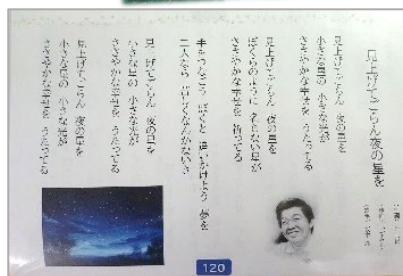 見上げてごらん夜の星を
見上げてごらん 夜の星を
小さな星の 小さな光が
ささやかな幸せを うたってる
見上げてごらん 夜の星を
ぼくらのように 名もない星が
ささやかな幸せを 祈ってる
手をつなごう ぼくと 追いかけよう 夢を
二人なら 苦しくなんかないさ
見上げてごらん 夜の星を
小さな星の 小さな光が
ささやかな幸せを うたってる
見上げてごらん 夜の星を
小さな星の 小さな光が
ささやかな幸せを うたってる
120